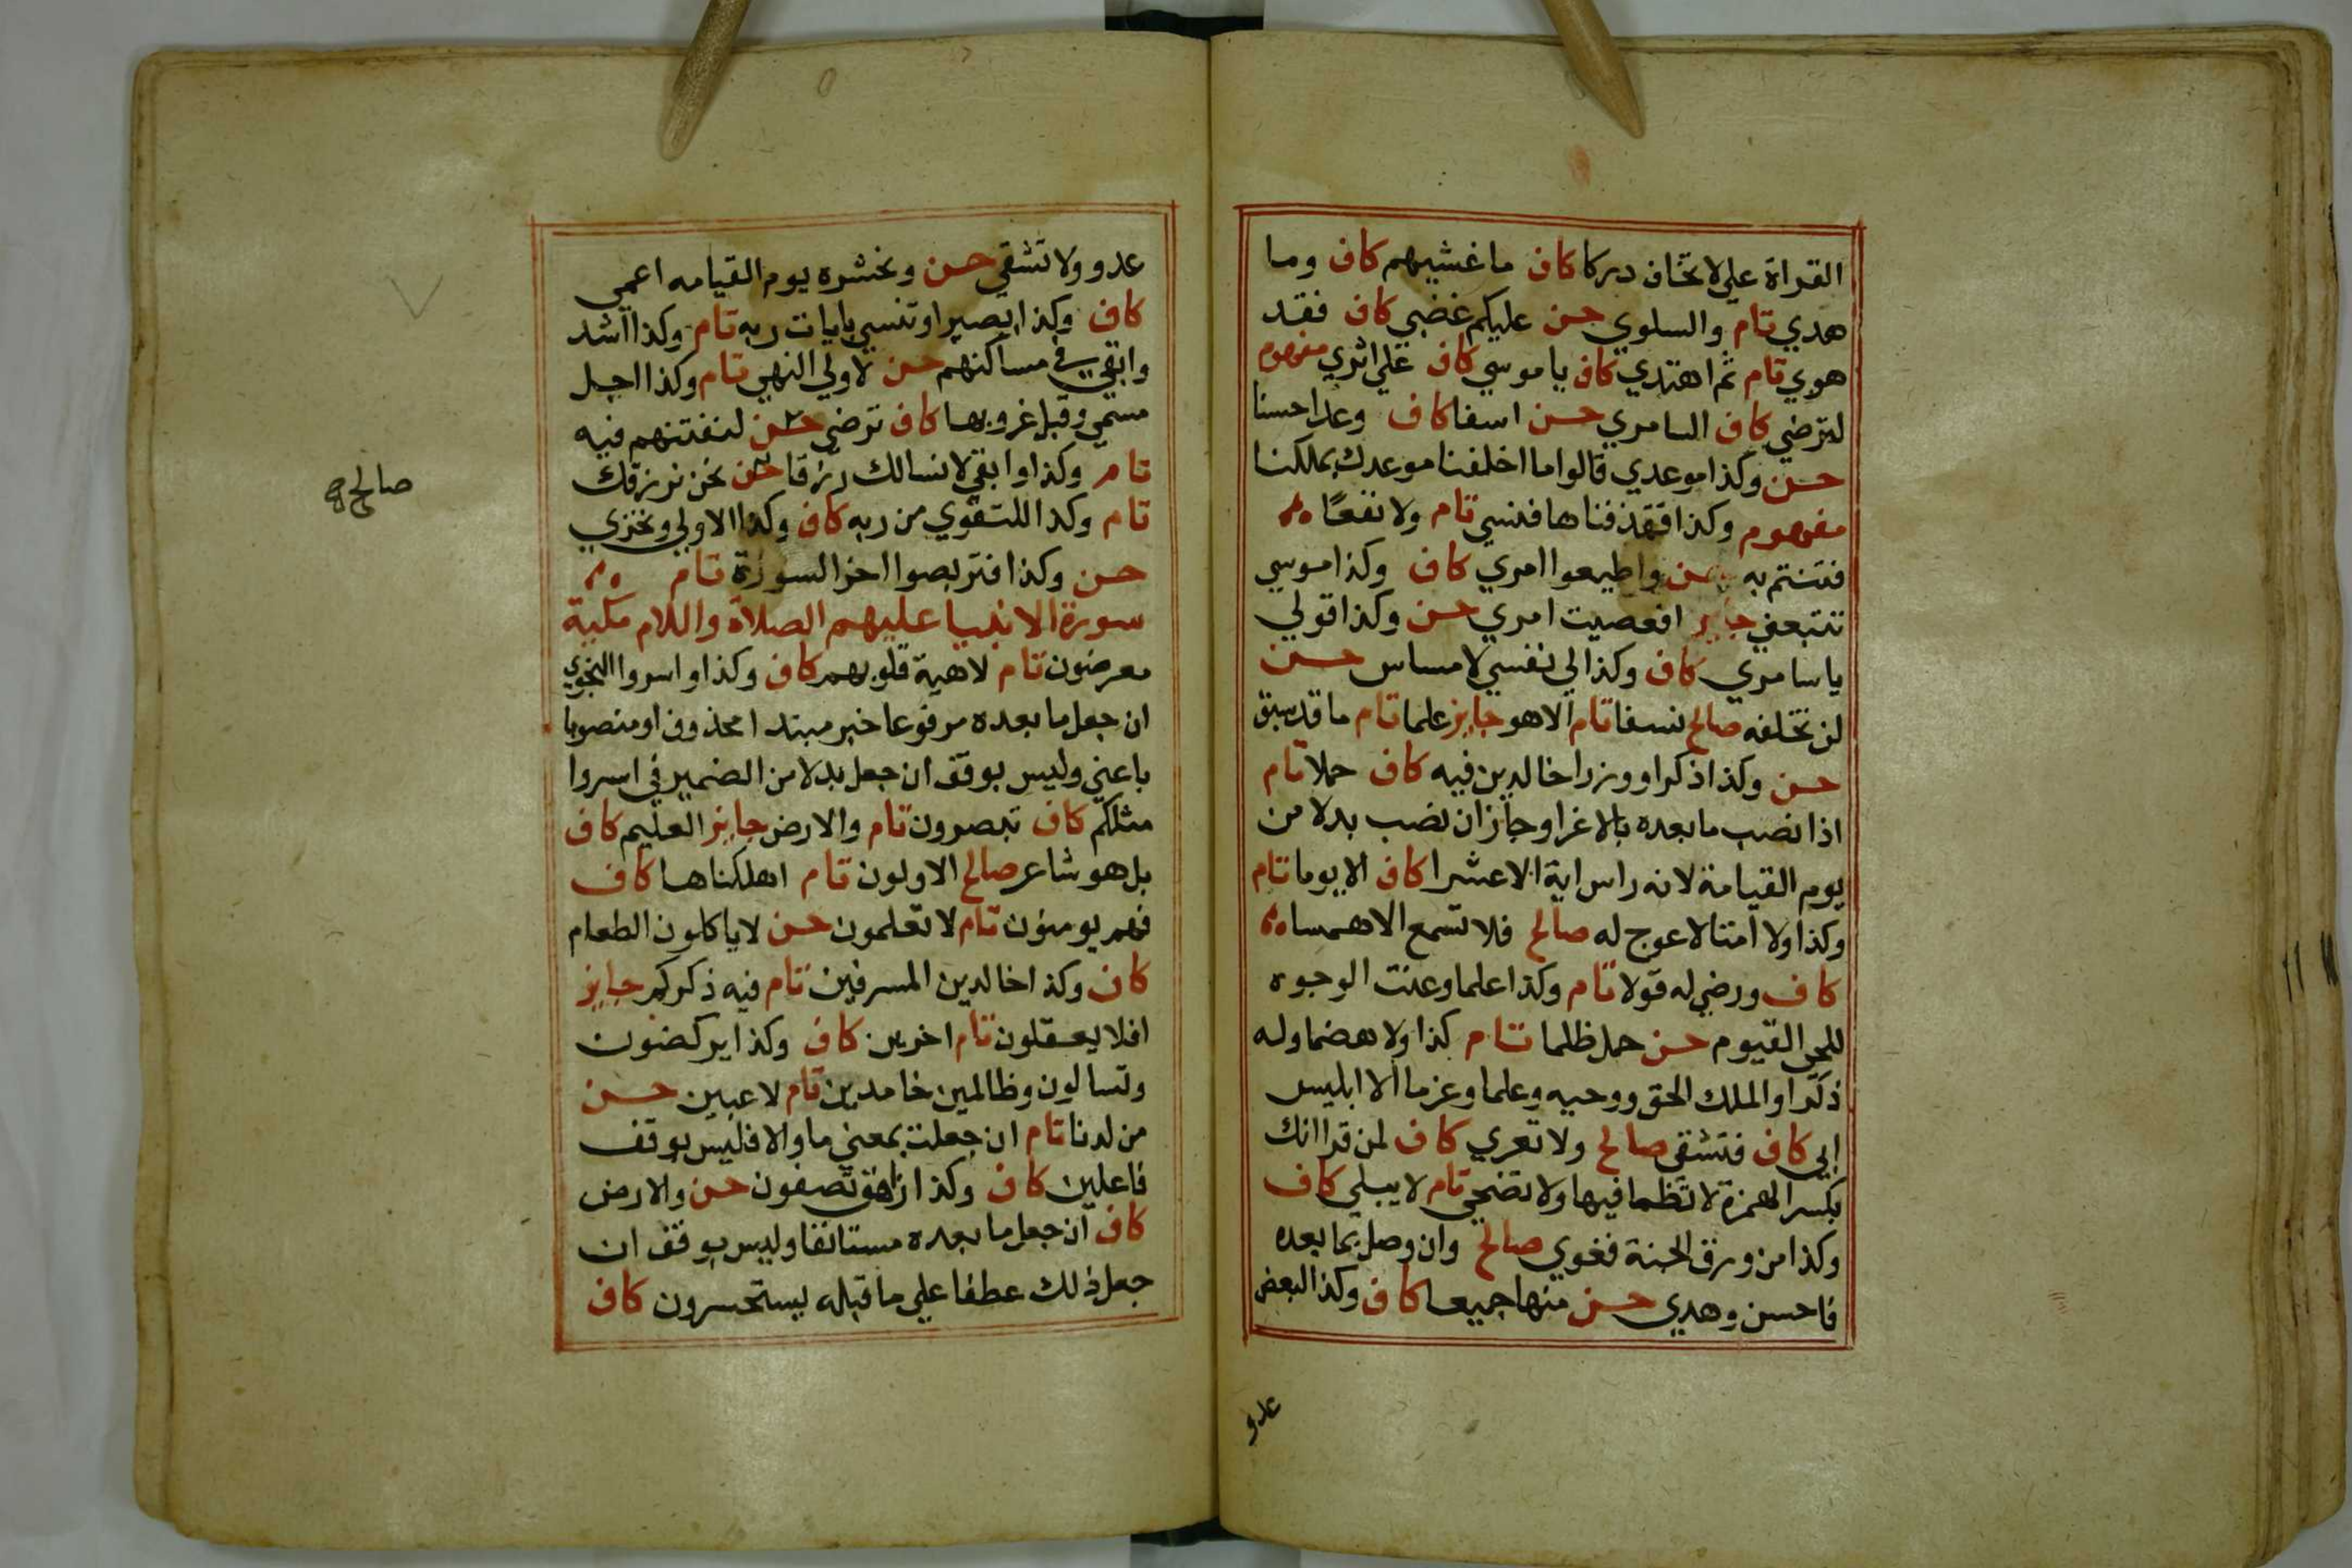 القراة علي لا تخاف دركا كاف ما غشيهم كاف وما
هدي تام والسلوي حسن عليكم غضبي كاف فقد
هوي تام ثم اهتدي كاف يا موسي كاف علي اثري مفهوم
لترضي كاف السامري حسن اسفا كاف وعدا حسنا
حسن وكذا موعدي قالوا ما اخلفنا موعدك بملكنا
مفهوم وكذا فقذفناها فنسي تام ولا نفعًا
فتنتم به حسن واطيعوا امري كاف وكذا موسي
تتبعني جايز افعصيت امري حسن وكذا قولي
يا سامري كاف وكذا لي نفسي لا مساس حسن
لن تخلفه صالح نسفا تام الا هو جايز علما تام ما قد سبق
حسن وكذا ذكرا ووزرا خالدين فيه كاف حملا تام
اذا نصب ما بعده بالاغرا وجاز ان نصب بدلا من
يوم القيامة لانه راس اية الا عشرا كاف الا يوما تام
وكذا ولا امتا لا عوج له صالح فلا تسمع الا همسا
كاف ورضي له قولا تام وكذا علما وعنت الوجوه
للحي القيوم حسن حمل ظلما تام كذا ولا هضما وله
ذكرا والملك الحق ووحيه وعلما وعزما الا ابليس
ابي كاف فتشقي صالح ولا تعري كاف لمن قرا انك
بكسر الهمزة لا تظما فيها ولا تضحي تام لا يبلي كاف
وكذا من ورق الجنة فغوي صالح وان وصل بما بعده
فاحسن وهدي حسن منها جميعا كاف وكذا لبعض
عدو
عدو ولا تشقي حسن ونحشره يوم القيامه اعمي
كاف وكذا بصيرا وتنسي بايات ربه تام وكذا اشد
وابقي في مساكنهم حسن لاولي النهي تام وكذا اجل
مسمي وقبل غروبها كاف ترضي حسن لنفتنهم فيه
تام وكذا وابقي لا نسالك رزقا حسن نحن نرزقك
تام وكذا للتقوي من ربه كاف وكذا الاولي ونخزي
حسن وكذا فتربصوا اخر السورة تام
سورة الانبيا عليهم الصلاة والسلام مكية
معرضون تام لاهية قلوبهم كاف وكذا واسروا النجوي
ان جعل ما بعده مرفوعا خبر مبتدا محذوف او منصوبا
باعني وليس بوقف ان جعل بدلا من الضمير في اسروا
مثلكم كاف تبصرون تام والارض جايز العليم كاف
بل هو شاعر صالح الاولون تام اهلكناها كاف
افهم يومنون تام لا تعلمون حسن لا ياكلون الطعام
كاف وكذا خالدين المسرفين تام فيه ذكركم جايز
افلا يعقلون تام اخرين كاف وكذا يركضون
وتسالون وظالمين خامدين تام لاعبين حسن
من لدنا تام ان جعلت بمعني ما والا فليس بوقف
فاعلين كاف وكذا زاهق تصفون حسن والارض
كاف ان جعل ما بعده مستانفا وليس بوقف ان
جعل ذلك عطفا علي ما قبله يستحسرون كاف
صالح